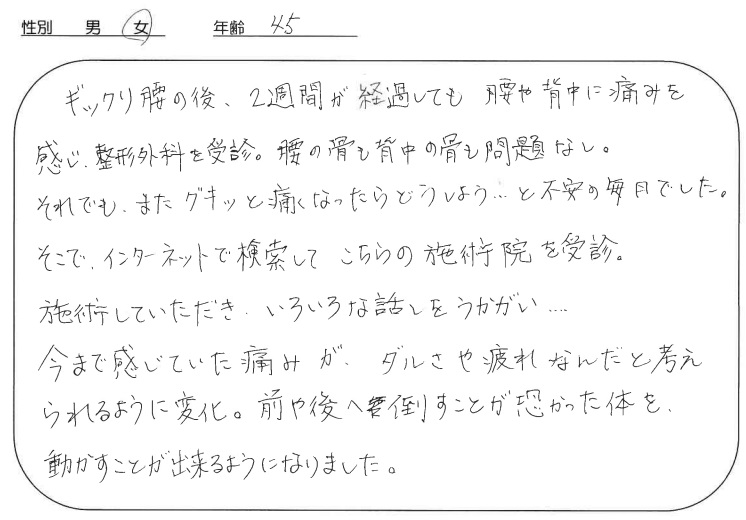 性別 男 女 年齢 45
ギックリ腰の後、2週間が経過しても 腰や背中に痛みを
感じ、整形外科を受診。腰の骨も背中の骨も問題なし。
それでも、またグキッと痛くなったらどうしよう…と不安の毎日でした。
そこで、インターネットで検索して こちらの施術院を受診。
施術していただき、いろいろな話しをうかがい……
今まで感じていた痛みが、ダルさや疲れなんだと考え
られるように変化。前や後へ倒すことが恐かった体を、
動かすことが出来るようになりました。